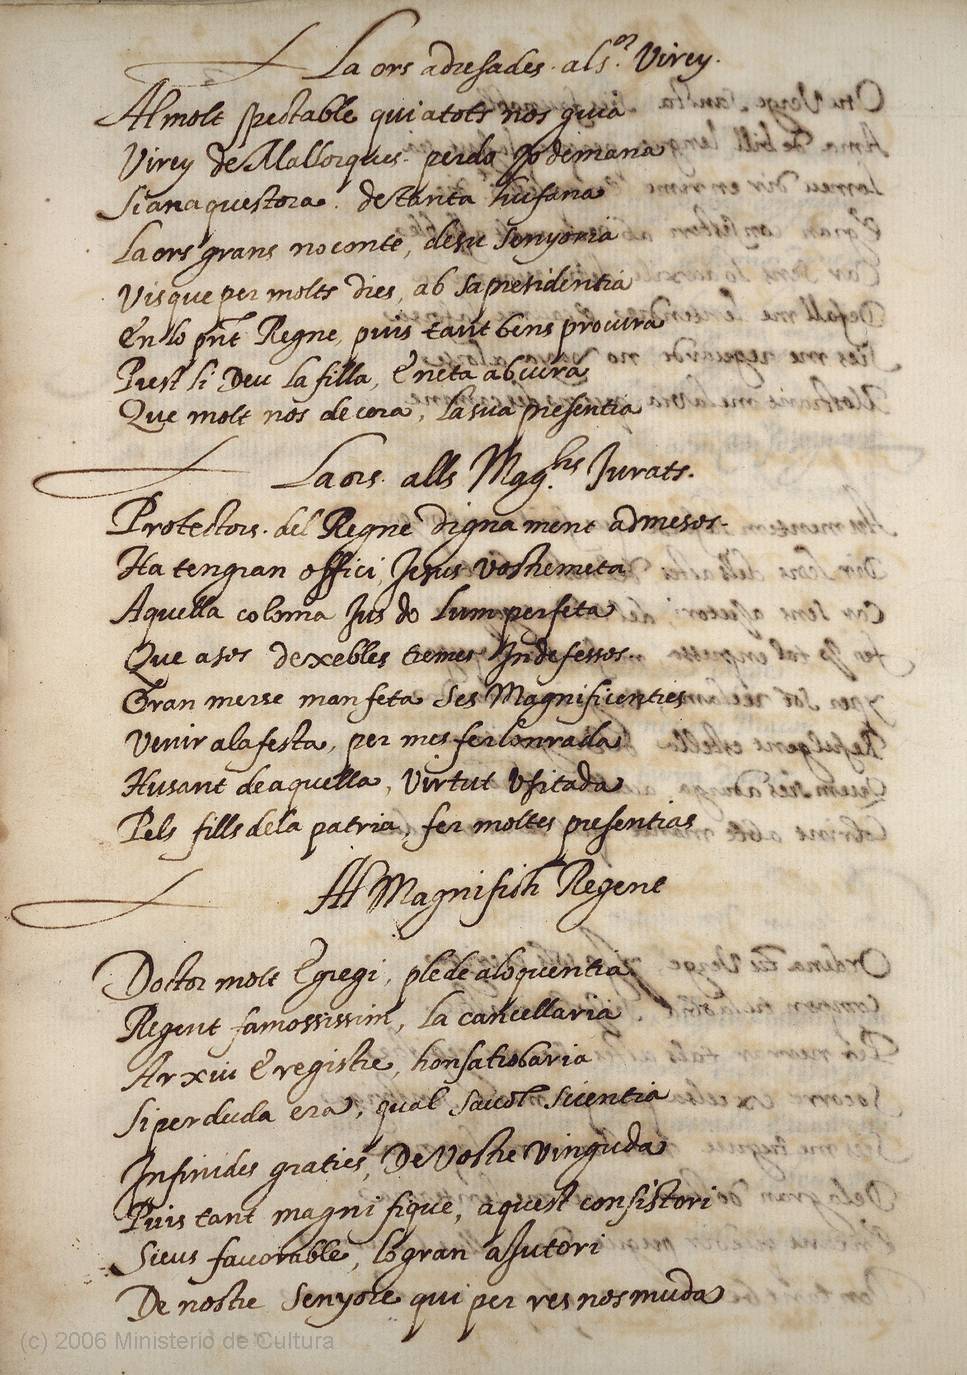 Laors adresades als.or Virey.
Al molt spectable qui a tots nos guia
Virey de Mallorques. perdo Jo demana
Si ara questora. de tanta hufana
Laors grans no conte, de su senyoria
Visque per molts dies, ab sa presidentia
En lo pnt Regne, puis tant bens procura
Prest li Deu la filla, E neta ab cura
Que molt nos decora, la sua presentia
Laors. alls Magchs Jurats.
Protectors. del Regne dignament admesos.
Ha tengran offici, Jesus vostre meta
Aquella coloma Jus do lum perfeta
Que a sos dexebles tremes Indefessos.
Gran merse man feta ses Magnificenties
Venir a la festa, per mes ferlonrada
Husant de aquella, virtut Usitada
Pels fills de la patria, fer moltes presentias
Al Magnifich Regent
Doctor molt Egregi, ple de aloquentia
Regent famossissim, la cancellaria
Arxiu E registre, honsatrobaria
Si perduda era, qual sevol sientia
Infinides graties, De vostre vinguda
Puis tant magnifique, aquest consistori
Sieus favorable, lo gran assutori
De nostre Senyore qui per res nos muda
(c) 2006 Ministerio de Cultura